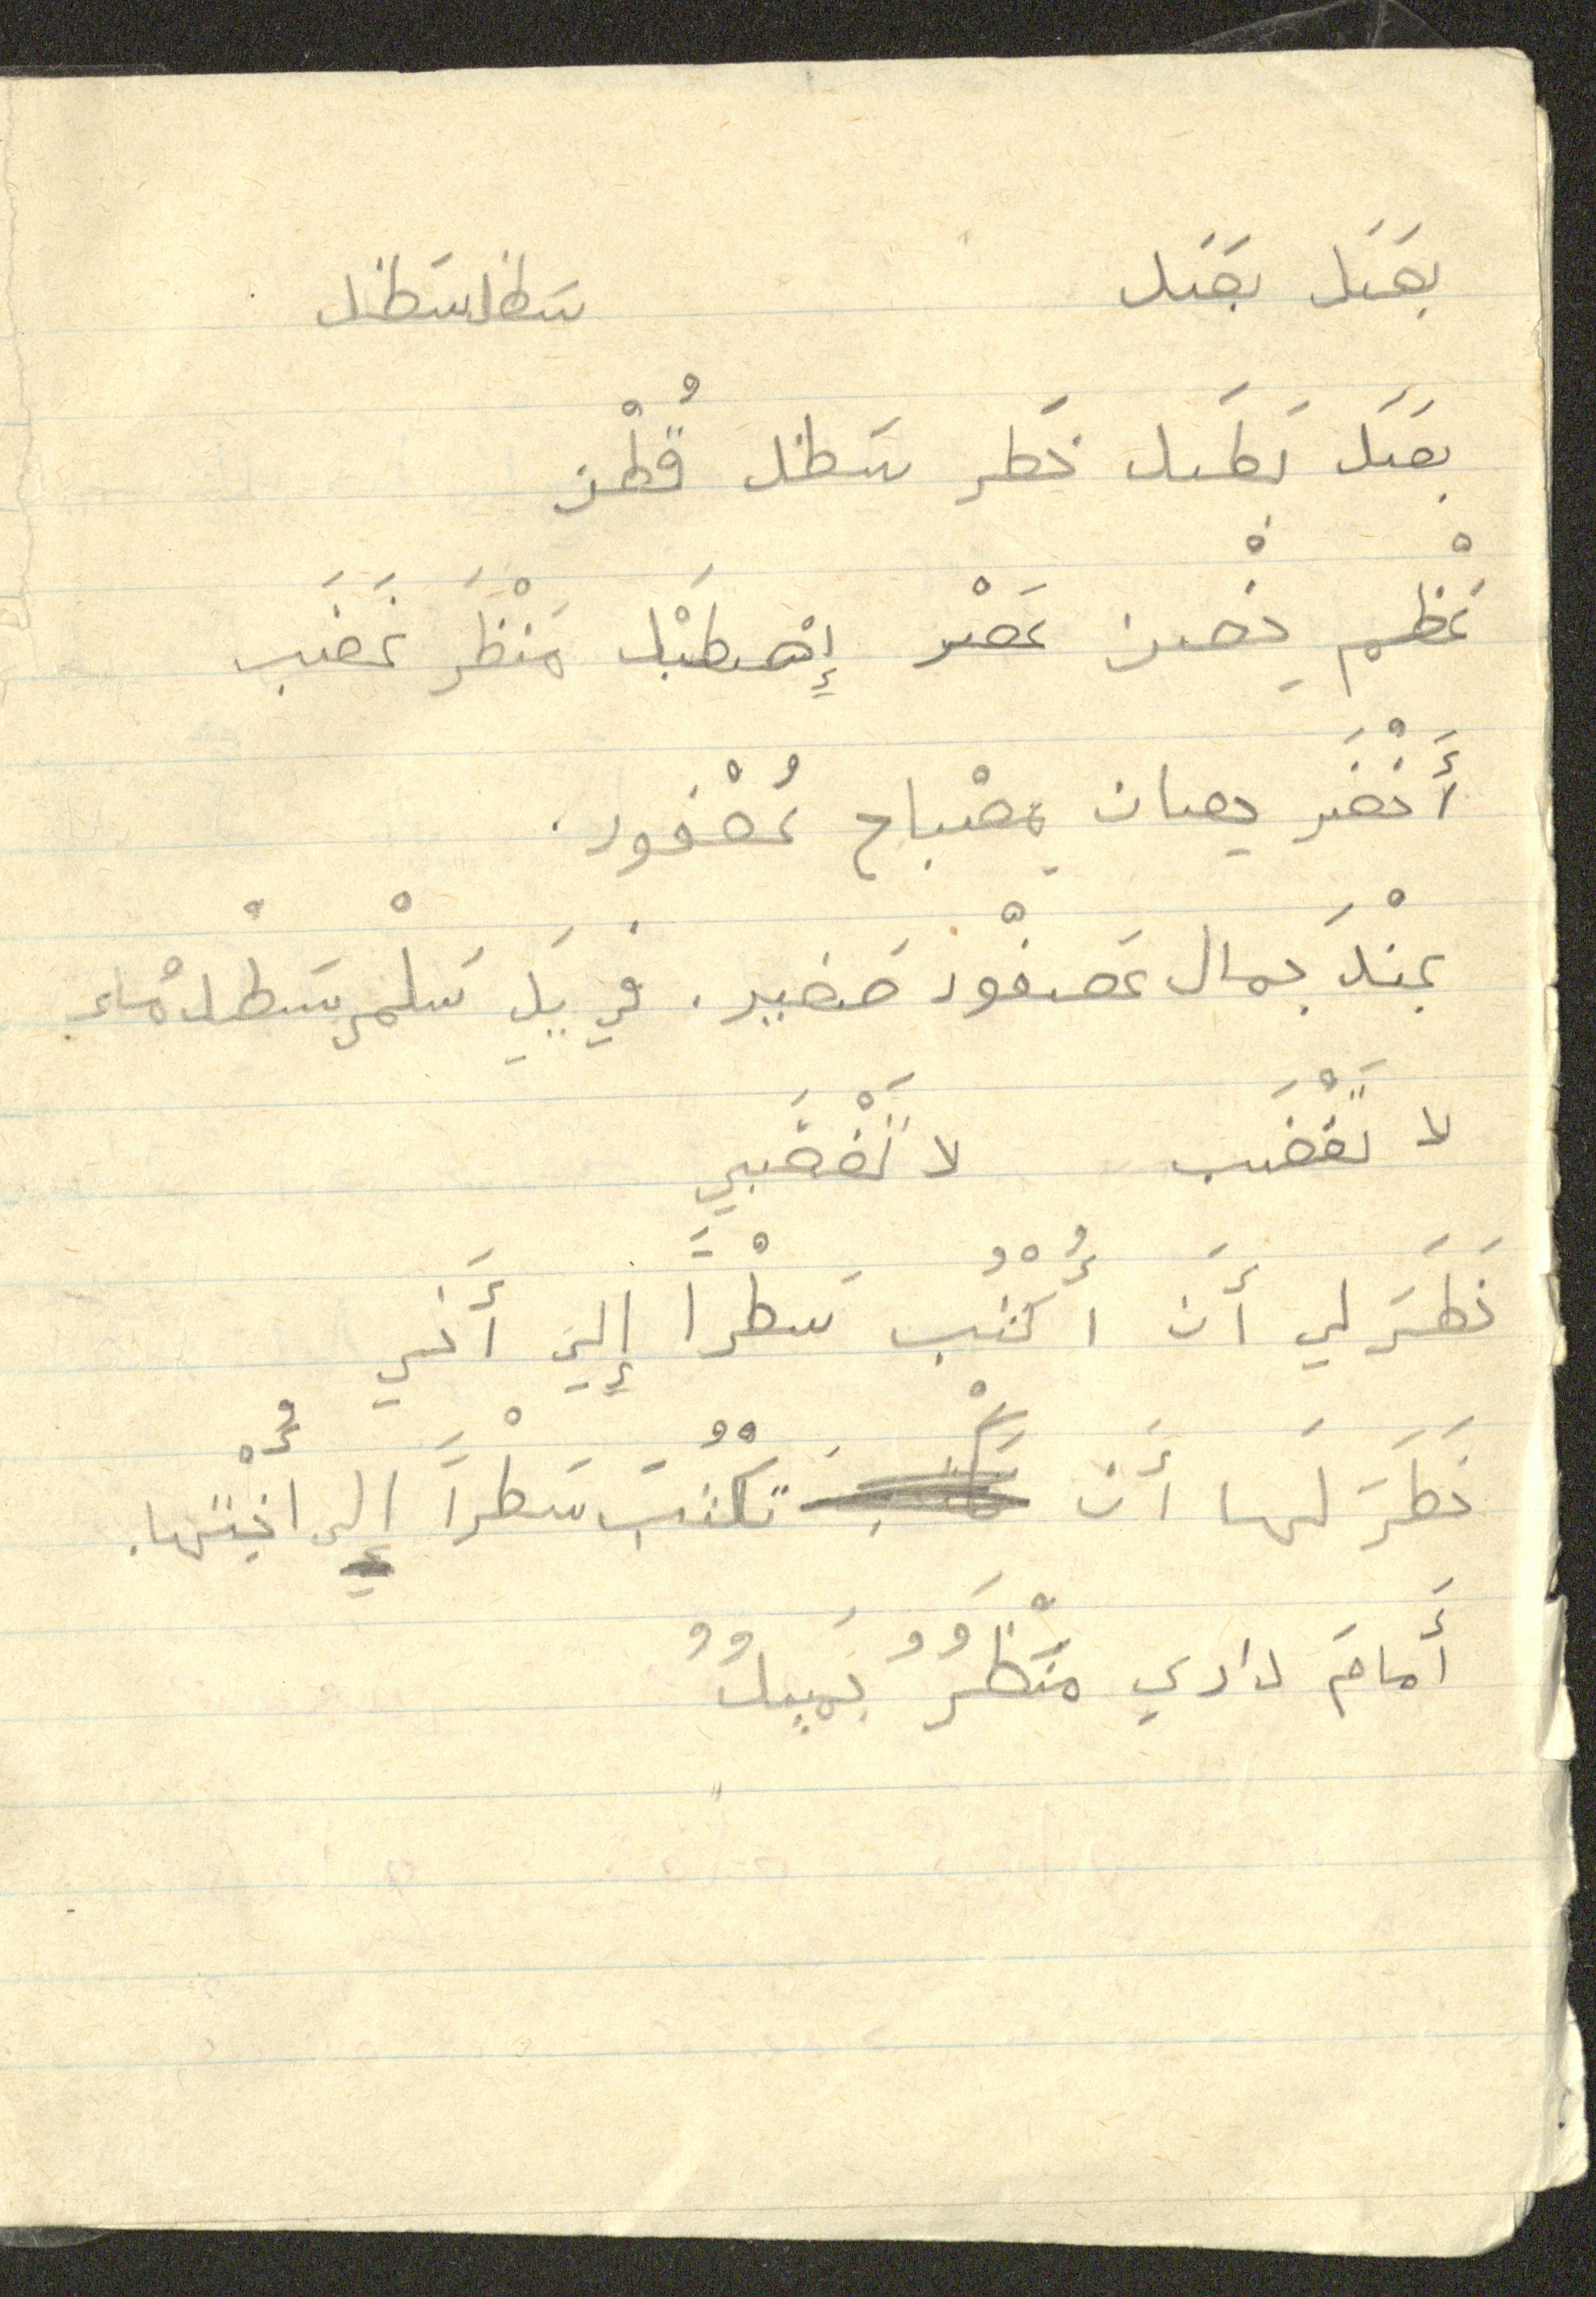 بَصَل بَصَل سَطل سَطل
بَصَل بَطَل خَطَر سَطل قُطْن
عَظْم حِصْن عَصْر إِصْطَبْل مَنْظَرَ غَضَب
أَخْضَر حِصان مِصْباح عُصْفور.
عِنْدَ جمال عَصفْور صَغير. في يَدِ سَلْمى سَطْل مْاء
لا تَغْضَب لا تَغْضَبي
خَطَرَ لي أَن أُكْتُب سَطْراً إِلي أَخي
خَطَرَ لَها أَن تَكْتُبَ سَطْراً إلى أُخْتِها.
أَمامَ داري مَنْظَرٌ جَميلٌ